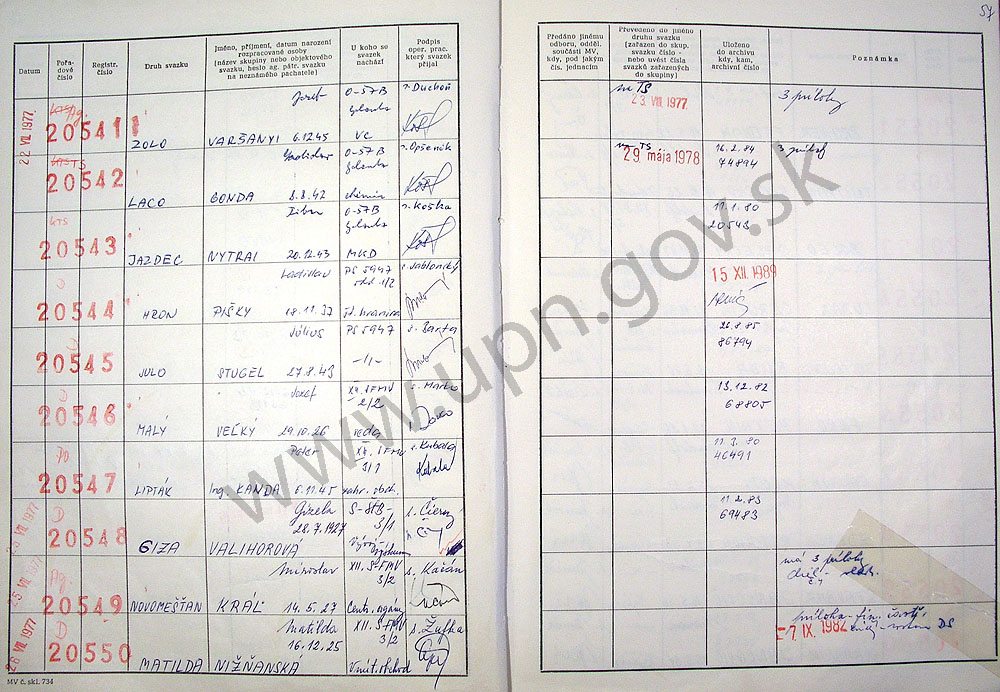 57
Datum
Pořadové číslo
Registr. číslo
Druh svazku
Jméno, příjmení, datum narození rozpracované osoby (název skupiny nebo objektového svazku, heslo ag. pátr. svazku na neznámého pachatele)
U koho se svazek nachází
Podpis oper. prac. který svazek přijal
Předáno jinému odboru, odděl. součásti MV, kdy, pod jakým čís. jednacím
Převedeno do jiného druhu svazku (zařazen do skup. svazku číslo - nebo uvést čísla svazků zařazených do skupiny)
Uloženo do archivu kdy, kam, archivní číslo
Poznámka
22 VII. 1977
Ag.
205411
ZOLO
Jozef
VARŠANYI 6.12.45
0-57B
VC
s. Duchoň
TS
23. VIII. 1977
3 prílohy
TS
20542
LACO
Ladislav
GONDA 8.8.42
0-57B
s. Opšeník
TS
29. mája 1978
16.2.84
74894
3 prílohy
KTS
20543
JAZDEC
NYTRAI 20.12.43
0-57B
MKD
s. Koška
11.1.80
20543
D
20544
HRON
Ladislav
PIŠKY 18.11.37
PS 5947
s. Jablonický
15 XII. 1989
D
20545
JULO
Július
STUGEL 27.8.43
PS 5947
-//-
s. Barta
26.8.85
86794
D
20546
MALÝ
Jozef
VEĽKÝ 29.10.26
XII. SFMV
2/2
s. Marko
13.12.82
68805
20547
LIPTÁK
Peter
Ing. KANDA 6.11.45
XII. SFMV
3/1
zahr. obch.
s. Kubala
Kubala
11.3.80
46491
25 VII 1977
D
20548
GIZA
Gizela
28.7.1927
VALIHOROVÁ
S-ŠTB-
3/1
s. Čierny
11.2.83
69483
25 VII 1977
Ag.
20549
NOVOMEŠŤAN
Miroslav
KRÁĽ 14.5.27
XII. S-FMV
3/2
Centr. orgány
s. Kačán
má 3 prílohy
26 VII 1977
D
20550
MATILDA
Matilda
16.12.25
NIŽŇANSKÁ
XII. S FMV
3/2
Vnút. obchod
s. Žufka
-7 IX. 1982
príloha - fin.
DS
MV č. skl. 734
www.upn.gov.sk